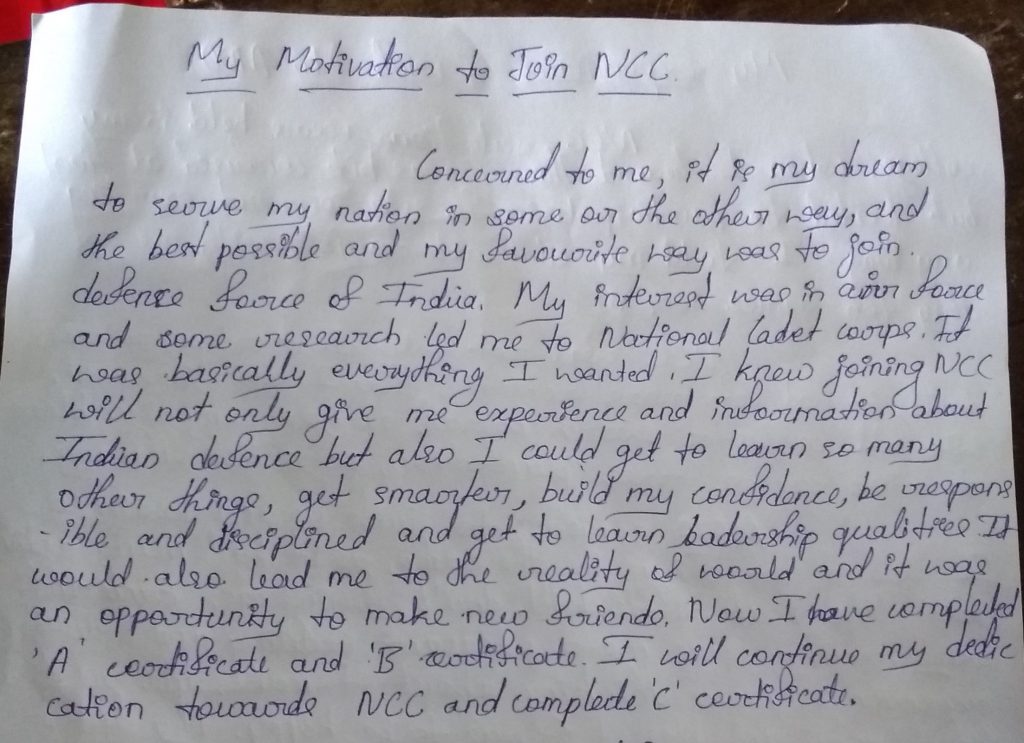 My Motivation to Join NCC.
Concerned to me, it is my dream
to serve my nation in some or the other way, and
the best possible and my favourite way was to join
defence force of India. My interest was in air force
and some research led me to National Cadet corps. It
was basically everything I wanted. I knew joining NCC
will not only give me experience and information about
Indian defence but also I could get to learn so many
other things, get smarter, build my confidence, be respons
-ible and disciplined and get to learn leadership qualities. It
would also lead me to the reality of world and it was
an opportunity to make new friends. Now I have completed
'A' certificate and 'B' certificate. I will continue my dedic
cation towards NCC and complete 'C' certificate.